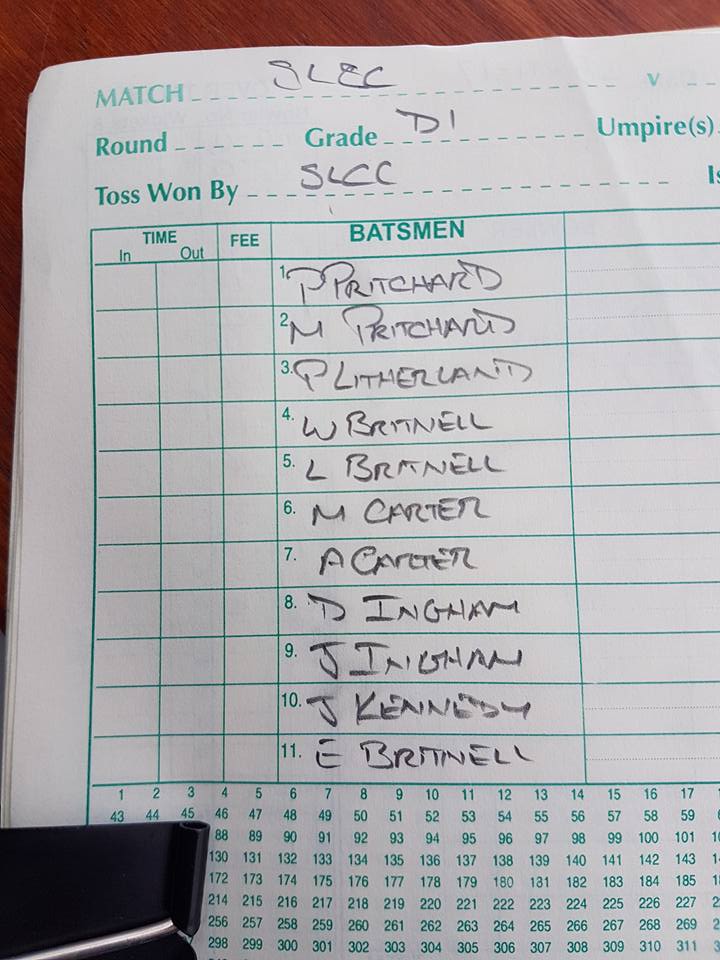 MATCH SLCC v
Round Grade D1 Umpire(s)
Toss Won By SLCC
TIME FEE BATSMEN
In Out
1. P PRITCHARD
2. M PRITCHARD
3. P LITHERLAND
4. W BRITNELL
5. L BRITNELL
6. M CARTER
7. A CARTER
8. D INGHAM
9. J INGHAM
10. J KENNEDY
11. E BRITNELL
1 2 3 4 5 6 7 8 9 10 11 12 13 14 15 16 17
43 44 45 46 47 48 49 50 51 52 53 54 55 56 57 58 59
88 89 90 91 92 93 94 95 96 97 98 99 100 101
130 131 132 133 134 135 136 137 138 139 140 141 142 143
172 173 174 175 176 177 178 179 180 181 182 183 184 185
214 215 216 217 218 219 220 221 222 223 224 225 226 227
256 257 258 259 260 261 262 263 264 265 266 267 268 269
298 299 300 301 302 303 304 305 306 307 308 309 310 311